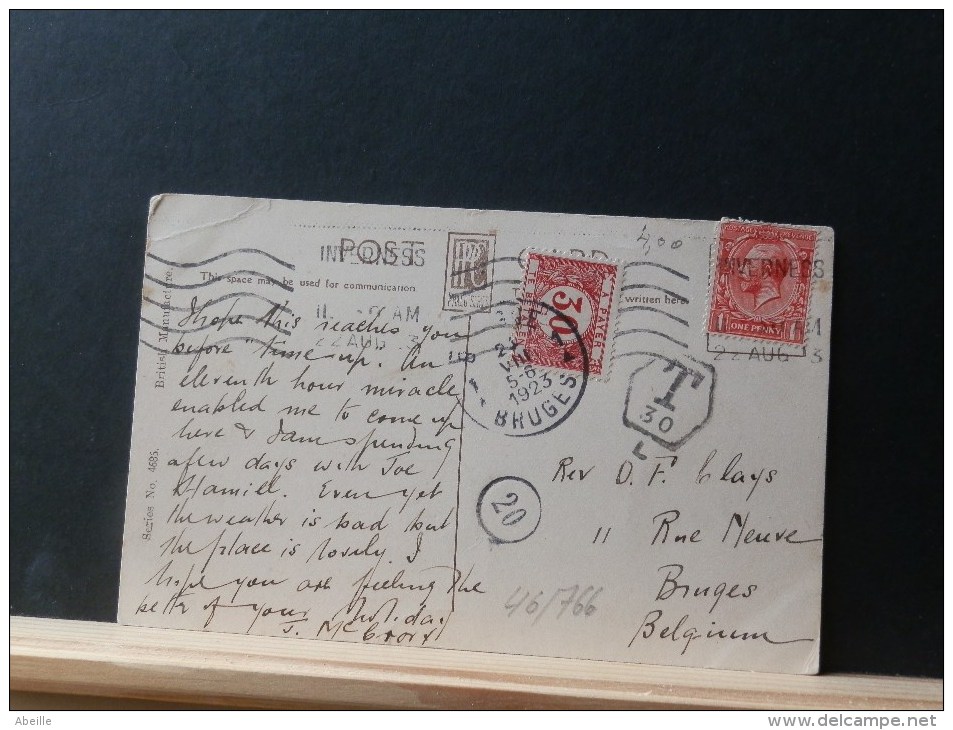 POST
INVERNESS
This space may be used for communication
written here
22 AUG
British Manufacture.
Series No. 4685.
I hope this reaches you
before "time up. An
eleventh hour miracle
enabled me to come up
here & I am spending
a few days with Joe
Hamill. Even yet
the weather is bad but
the place is lovely I
hope you are feeling the
better of your holiday
J. McCrory
4,00
30
A PAYER
1
VIII
5-6
1923
BRUGES
INVERNESS
ONE PENNY
22 AUG 3
T
30
L
20
Rev D. F. Clays
11 Rue Neuve
Bruges
Belgium
46/766
Abeille
http://www.delcampe.net